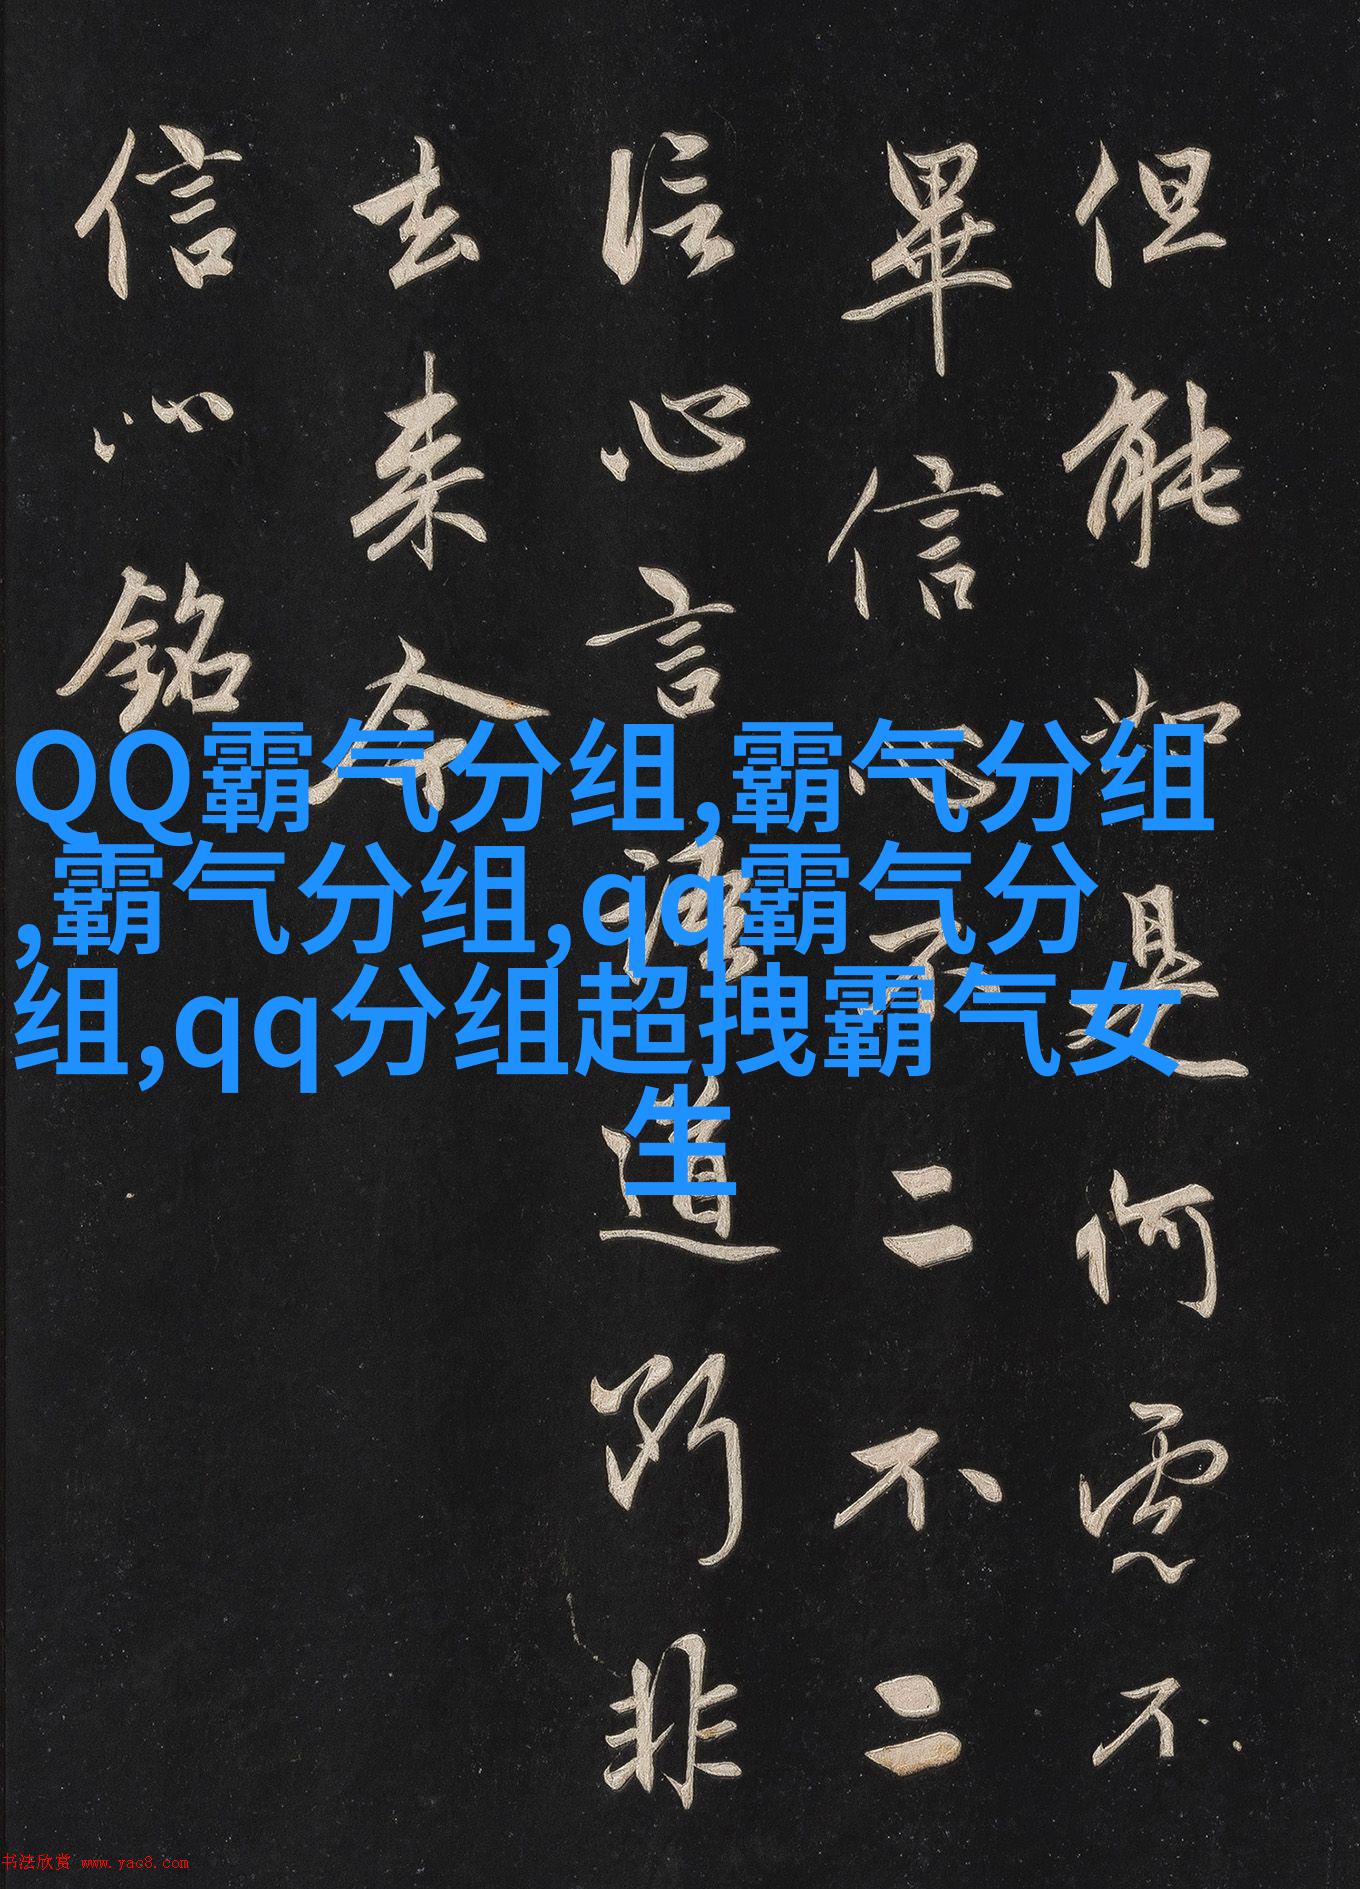 但能如是何慮不
畢信心不二不二
信心言語道斷非
去来今
信心銘
QQ霸气分组,霸气分组
,霸气分组,qq霸气分
组,qq分组超拽霸气女
生
书法欣赏 www.yac8.com